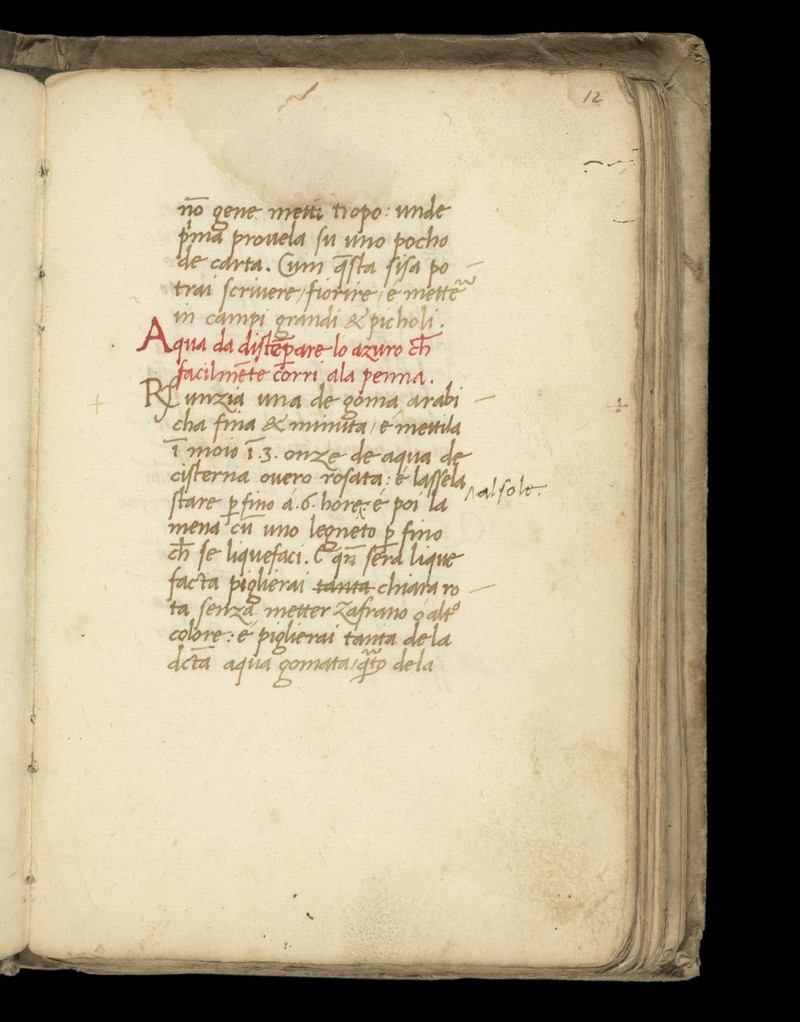 12
nō gene metti tropo: unde
p̄ma prouela su uno pocho
de carta. Cum q̄sta sisa po
trai scriuere / fiorire / e mettẽ
in campi grandi & picholi.
Aqua da distēp̄are lo azuro ch̄
facilmēte cōrri ala penna.
℞ unzia una de goma arabi
cha fina & minuta / e mettila
ī moio ī .3. onze de aqua de
cisterna ouero rosata: é lassela
^al sole.
stare ꝑ fino á .6. hore: é poi la
mena cū uno legneto ꝑ fino
ch̄ se liquefaci. E qn̄ sera lique
facta piglierai tanta chiara ro
ta senza metter Zafrano o altº
colore: é piglierai tanta de la
dcta̅ aqua gomata / q̄to dela